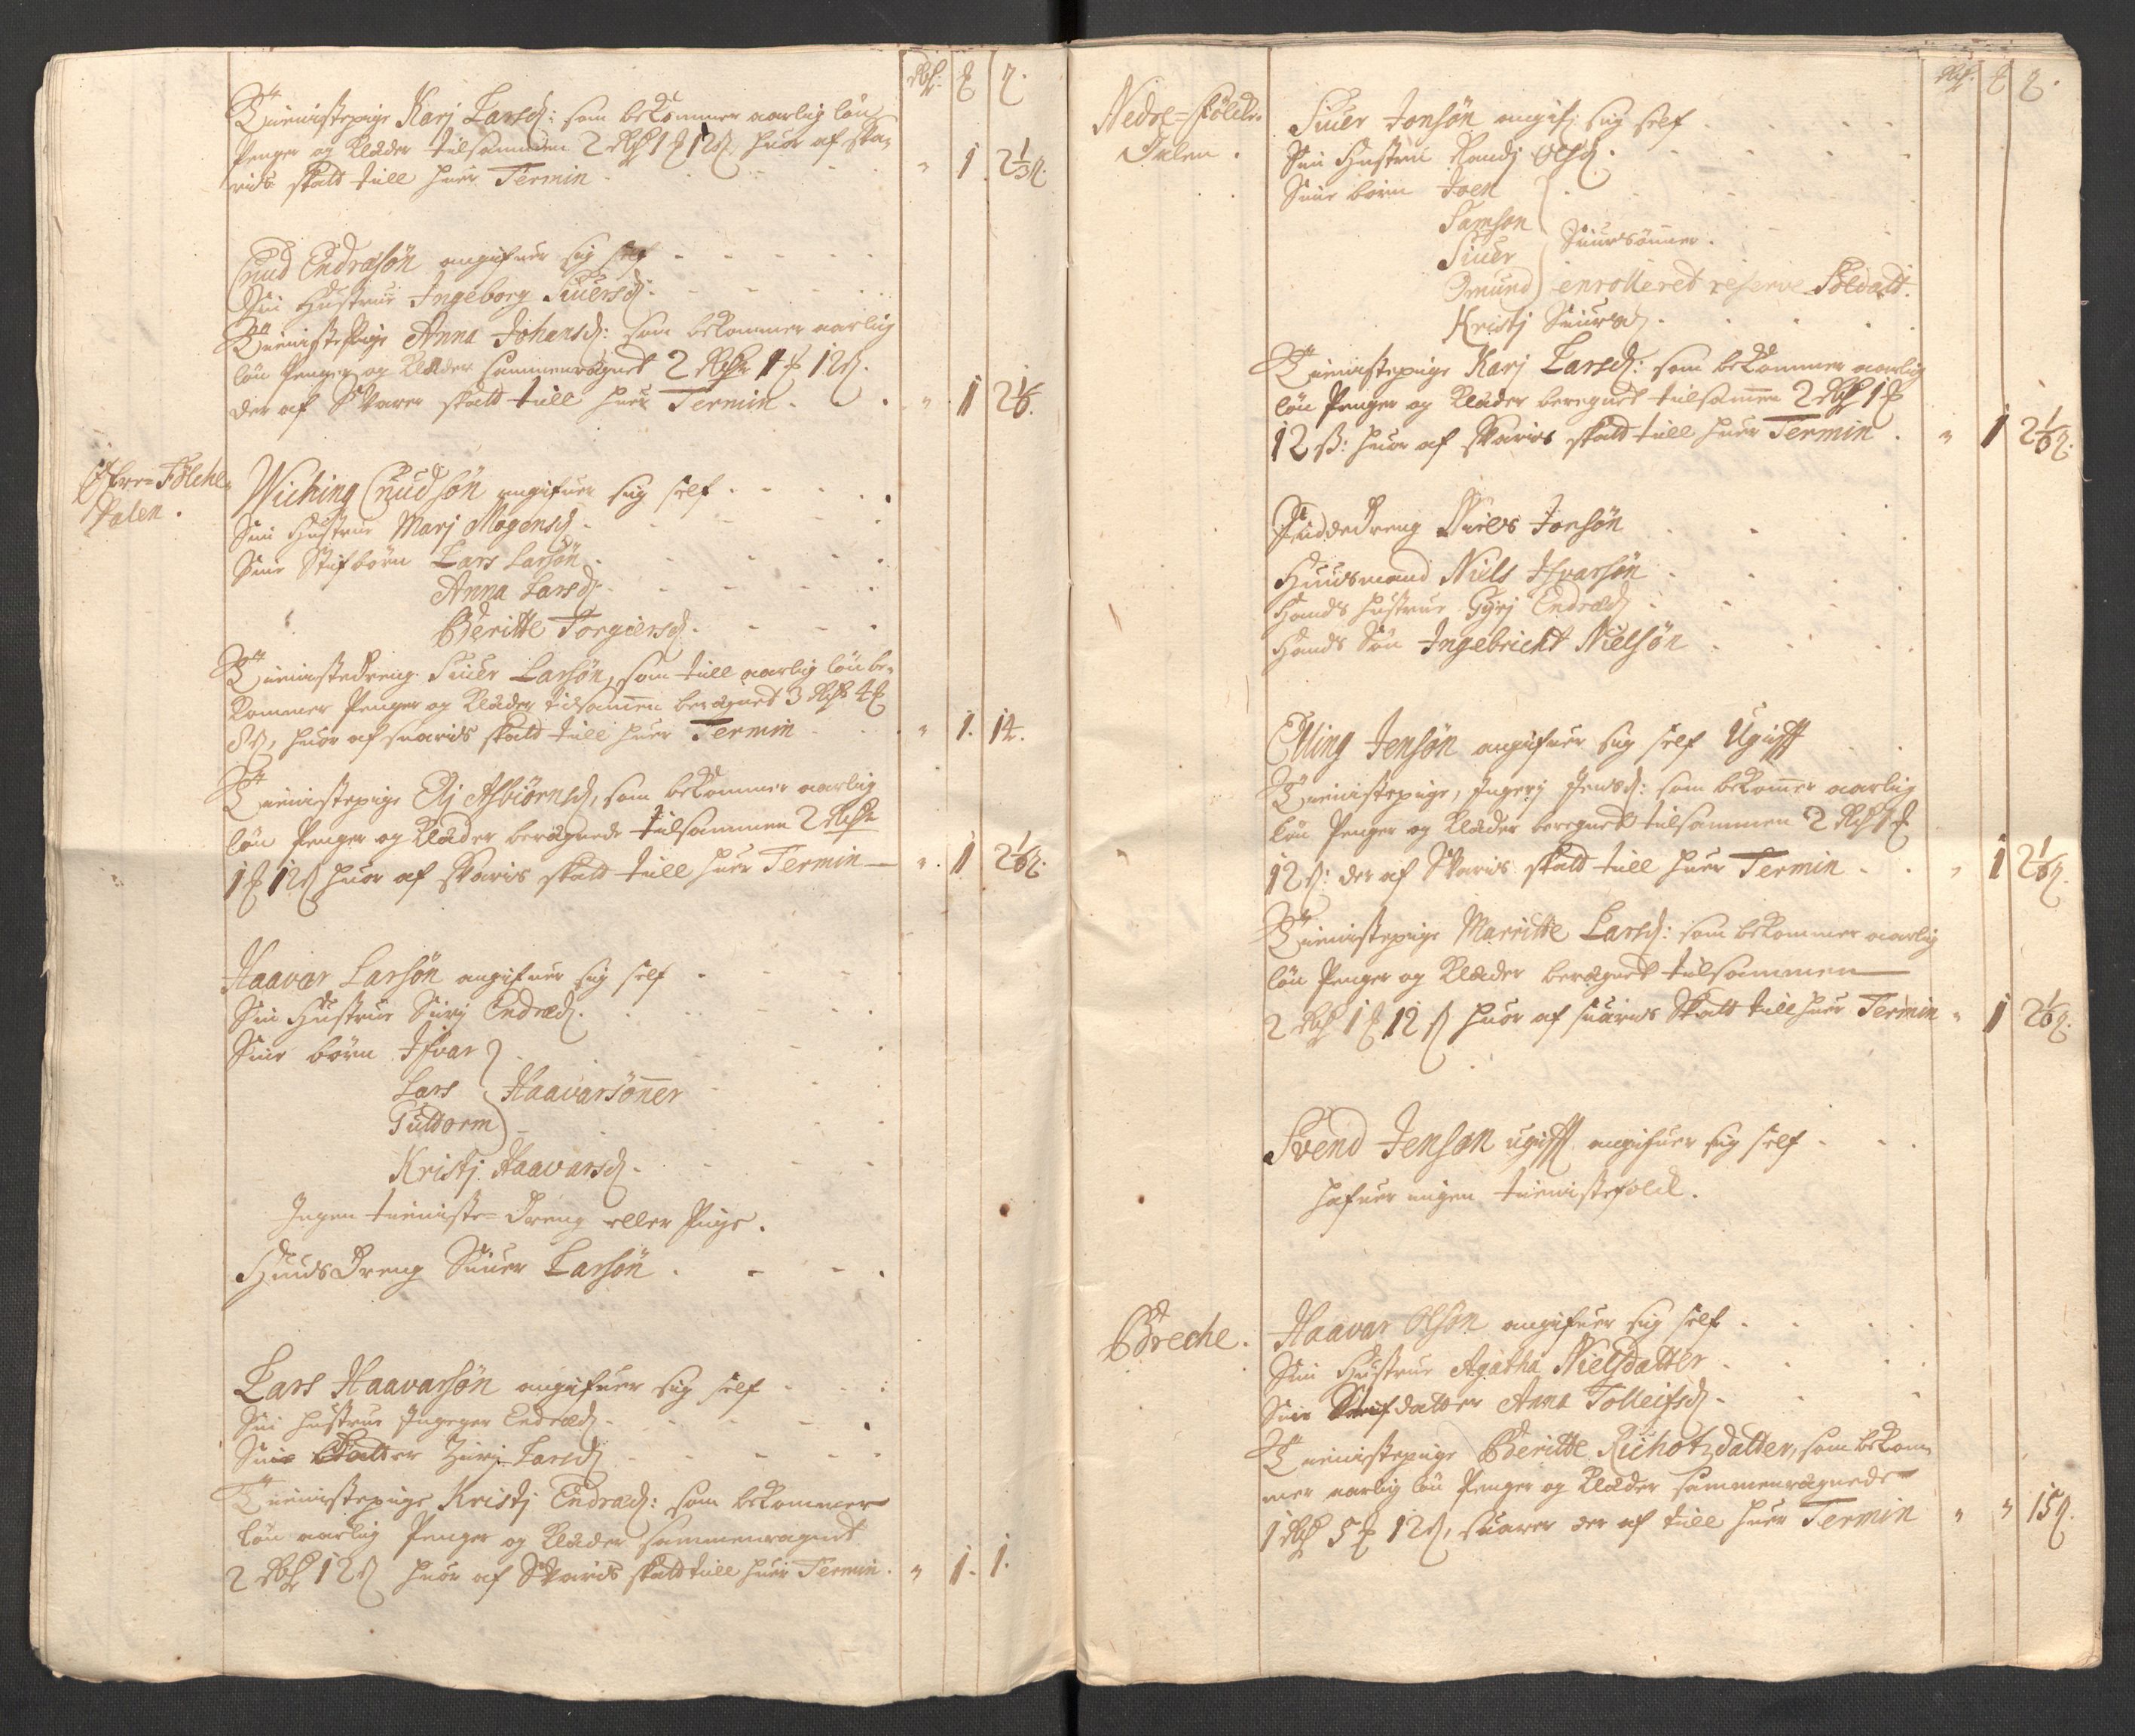 Rdlr: ℔ ß.
Tienistepige Karj Larsd: som bekommer aarlig løn
Penger og Klæder tilsammen 2 Rdr 1 ℔ 12 ß. huor af sva-
ris skatt till huer Termin " 1 2⅓ ß.
Cnud Endresøn angifuer sig self
Sin Hustrue Ingeborg Siuersd:
Tienistepige Anna Johansd: som bekommer aarlig
løn Penger og Klæder sammenregnet 2 Rdlr 1 ℔ 12 ß.
der af Svarer skatt till huer Termin " 1 2⅙.
Øfre=Følche
Dalen.
Wiching Cnudsøn angifuer sig self
Sin Hustrue Marj Mogensd
Sine Stifbörn Lars Larsøn
Anna Larsd
Beritte Torgiersd
Tienistedreng Siuer Larsøn, som till aarlig løn be-
kommer Penger og Klæder tilsamen beregnet 3 Rdlr 4 ℔
8 ß, huor af suaris skatt till huer Termin " 1. 14.
Tienistepige Elj Asbiörnsd, som bekommer aarlig
løn Penger og Klæder beregnede tilsammen 2 Rdlr
1 ℔ 12 ß huor af svaris skatt till huer Termin " 1 2⅙ ß.
Haavar Larsøn angifuer sig self
Sin Hustrue Surj Endred.
Sine börn Ifvar
Lars Haavarsönner
Guttorm
Kristj Haavarsd
Ingen tieniste=Dreng eller Pige.
HuusDreng Siuer Larsøn
Lars Haavarsøn angifuer sig self
Sin hustrue Ingeger Endred
Sin Datter Zurj Larsd
Tienistepige Kristj Endred: som bekommer
løn aarlig Penger og Klæder sammenregnet
2 Rdr 12 ß huor af Svaris skatt till huer Termin " 1. 1.
Rdr. ℔ ß.
Nedre=Følche
Dalen.
Siuer Jonsøn angif: sig self
Sin Hustrue Randj Olsd.
Sine börn Joen
Samson
Siuer Siursönner.
Omund enrolleret reserve Soldatt.
Kristj Siursd
Tienistepige Karj Larsd: som bekommer aarlig
løn Penger og Klæder beregnet tilsamen 2 Rdr 1 ℔
12 ß: huor af svaris skatt till huer Termin " 1 2⅙ ß.
Dreng Niels Jonsøn
Huusmand Niels Ifvarsøn
Hands hustrue Gyrj Endred
Hands Søn Ingebricht Nielsøn
Elling Jensøn angifuer sig self Ugifft
Tienistepige, Ingerj Jensd: som bekomer aarlig
løn Penger og Klæder beregnet tilsammen 2 Rdr 1 ℔
12 ß: der af Svaris skatt till huer Termin " 1 2⅙ ß.
Tienistepige Marritte Larsd: som bekommer aarlig
løn Penger og Klæder beregnet tilsammen
2 Rdr 1 ℔ 12 ß huor af suaris Skatt till huer Termin " 1 2⅙ ß.
Svend Jensøn ugifft angifuer sig self
hafuer ingen tienistefolck.
Breche.
Haavar Olson angifuer sig self
Sin Hustrue Agatha Nielsdatter
Sin Stifdatter Anna Tolleifsd
Tienistepige Beritte Richotzdatter, som bekom-
mer aarlig løn Penger og Klæder sammenregnede
1 Rdr 5 ℔ 12 ß, suarer der af till huer Termin " " 15 ß.